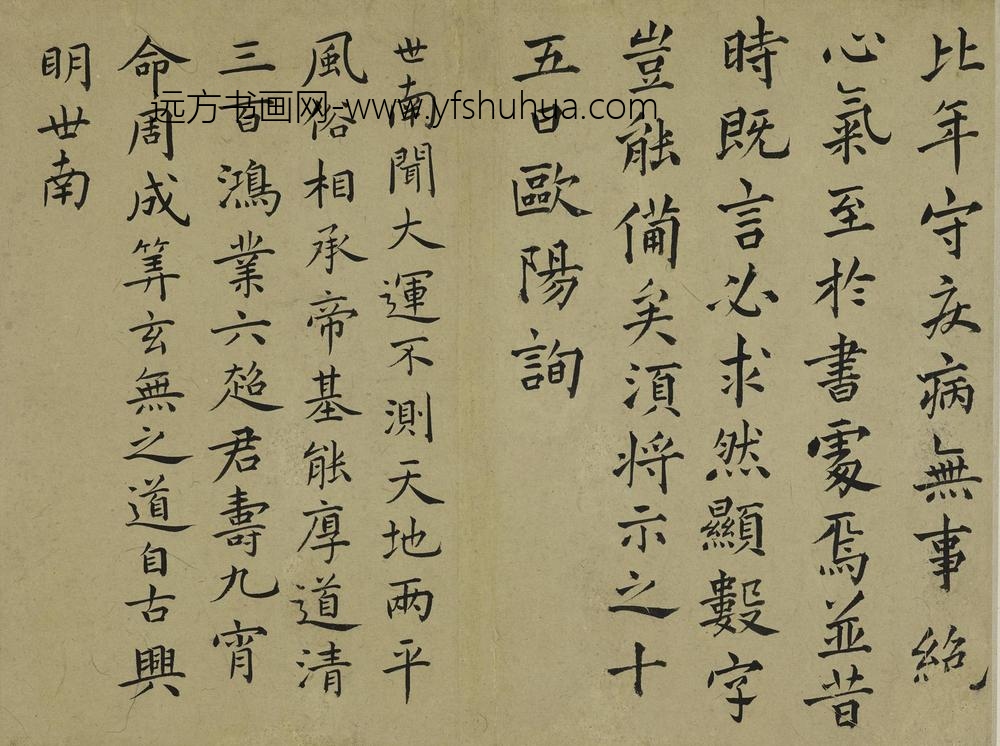 比年守疾病無事絕
心氣至於書處焉並昔
時既言必求然顯數字
豈能備矣須將示之十
五日歐陽詢
世南聞大運不測天地兩平
風俗相承帝基能厚道清
三百鴻業六超君壽九宵
命周成筭玄無之道自古興
明世南
远方书画网-www.yfshuhua.com